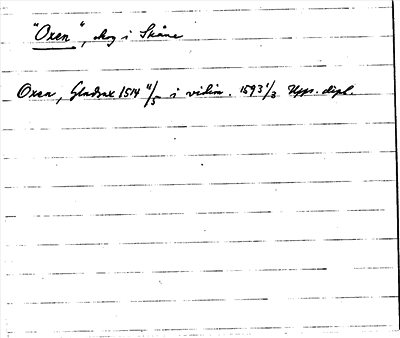 "Oxen", skog i Skåne
Oxen, Gladsax 1514 11/5 i vidim. 1593 1/3 Upps. dipl.